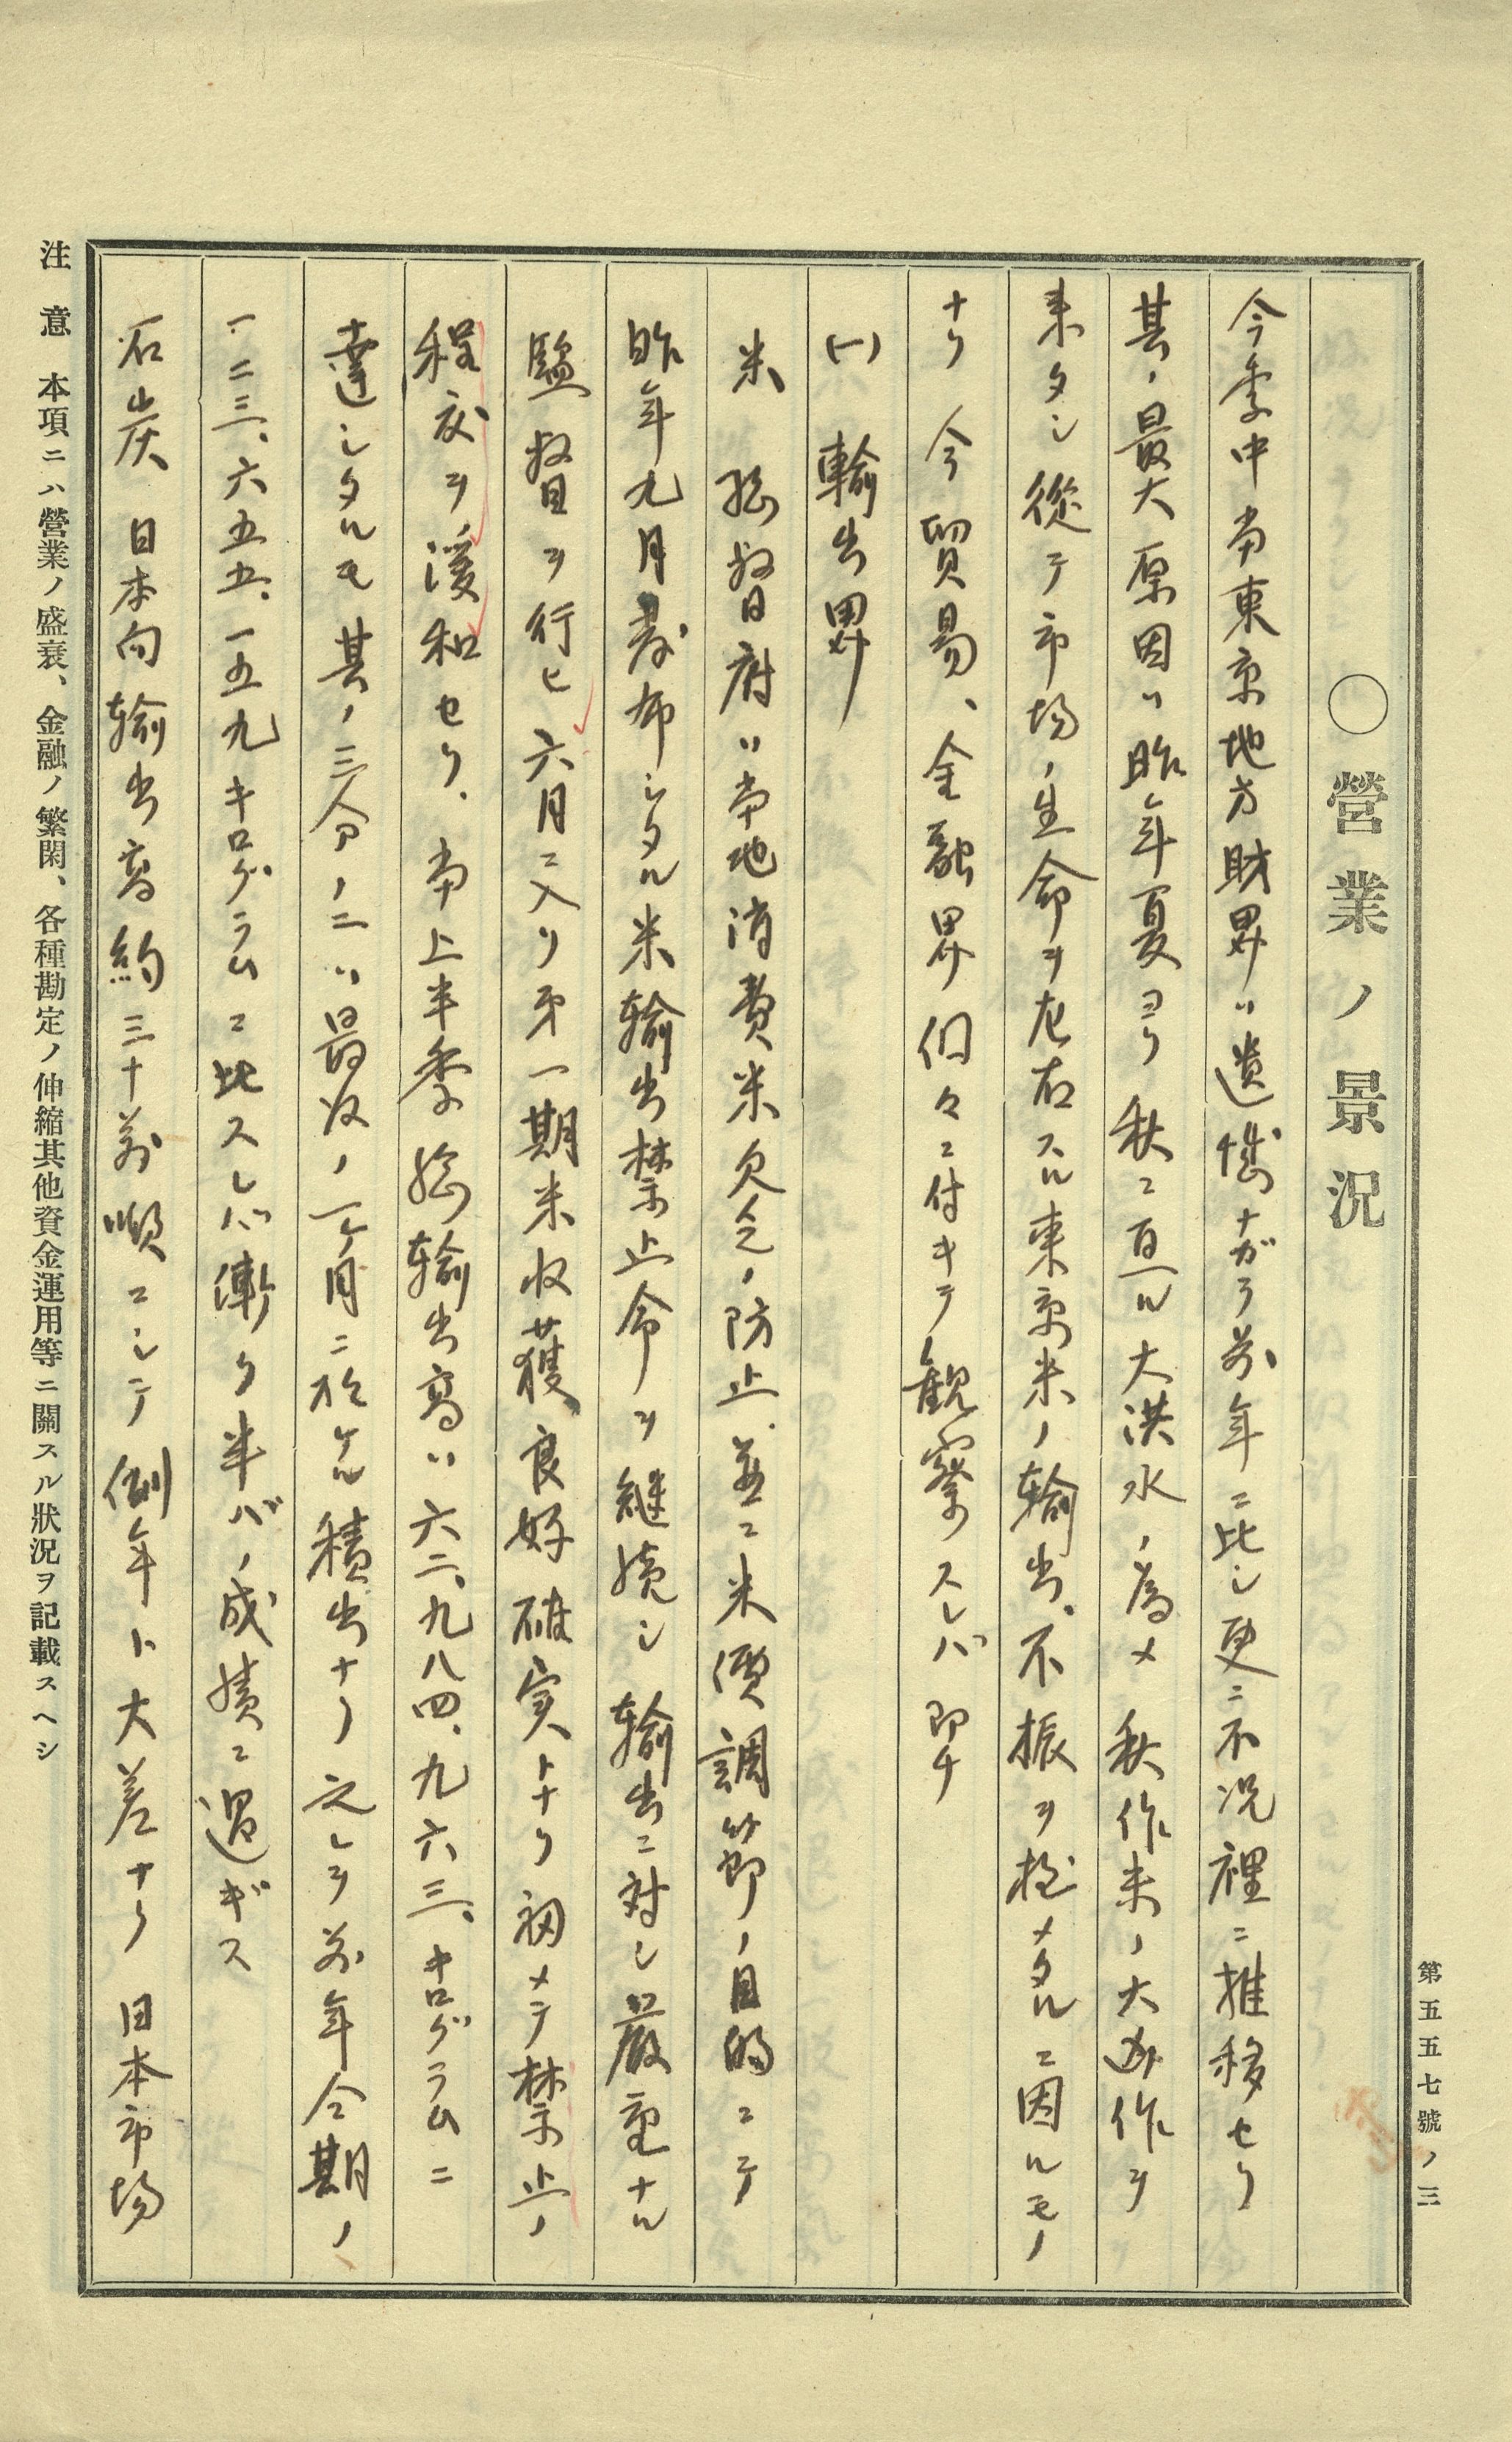 第五五七號ノ三
○營業ノ景況
今季中当東京地方財界ハ遺憾ナガラ前年ニ比シ更ニ不況裡ニ推移セリ
其ノ最大原因ハ昨年夏ヨリ秋ニ亘ル大洪水ノ為メ秋作米ノ大凶作ヲ
来タシ從テ市場ノ生命ヲ左右スル東京米ノ輸出不振ヲ極メタルニ因ルモノ
ナリ 今貿易、金融界個々ニ付キテ観察スレバ即チ
(一) 輸出界
米 総督府ハ当地消費米欠乏ノ防止、並ニ米價調節ノ目的ニテ
昨年九月発布シタル米輸出禁止令ヲ継続シ輸出ニ対シ厳重ナル
監督ヲ行ヒ六月ニ入リ第一期米収獲良好確実トナリ初メテ禁止ノ
程度ヲ緩和セリ、当上半季総輸出高ハ六二、九八四、九六三、キログラムニ
達シタルモ其ノ三分ノ二ハ最後ノ一ケ月ニ於ケル積出ナリ之レヲ前年仝期ノ
一二三、六五五、一五九キログラムニ比スレバ漸ク半バノ成績ニ過ギス
石炭 日本向輸出高約三十萬噸ニシテ例年ト大差ナリ 日本市場
注意 本項ニハ營業ノ盛衰、金融ノ繁閑、各種勘定ノ伸縮其他資金運用等ニ關スル狀況ヲ記載スヘシ